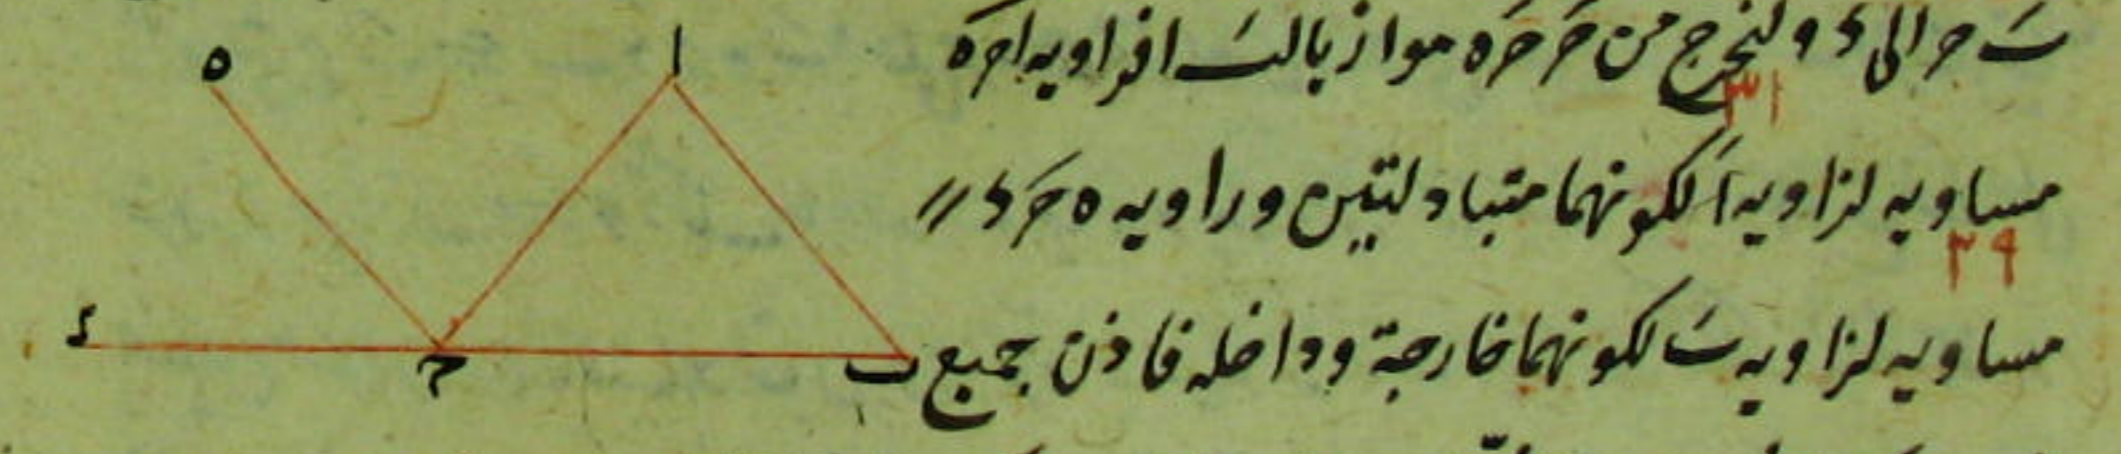 ب ح الى د ولنخرج من ح ح ه موازيا لب ا فزاويه ا ح ه
٣١
مساويه لزاويه ا لكونهما متبادلتين وزاويه ه ح د
٢٩
مساويه لزاويه ب لكونهما خارجة وداخله فاذن جميع
ا
ه
د
ح
ب